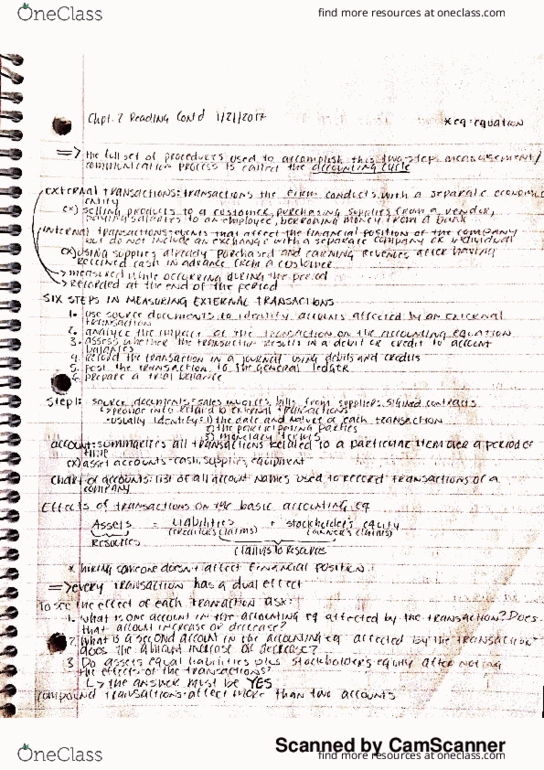 OneClass
find more resources at oneclass.com
Chpt. 2 Reading Cont'd 1/21/2017
*eq=equation
=> the full set of procedures used to accomplish this two-step measurement/
communication process is called the accounting cycle
External Transactions: transactions the firm conducts with a separate economic
entity
ex) selling products to a customer, purchasing supplies from a vendor,
paying salaries to an employee, borrowing money from a bank
internal transactions: events that affect the financial position of the company
but do not include an exchange with a separate company or individual
ex) using supplies already purchased and earning revenues after having
received cash in advance from a customer
> measured while occurring during the period
> recorded at the end of the period
SIX STEPS IN MEASURING EXTERNAL TRANSACTIONS
1. use source documents to identify accounts affected by an external
transaction
2. analyze the impact of the transaction on the accounting equation
3. assess whether the transaction results in a debit or credit to account
balances
4. record the transaction in a journal using debits and credits
5. post the transaction to the general ledger
6. prepare a trial balance
Step 1: source documents: sales invoices, bills from suppliers, signed contracts
provide info related to external transactions
usually identify: 1) the date and nature of each transaction
2) the participating parties
3) monetary terms
account: summarizes all transactions related to a particular item over a period of
time
ex) asset accounts- cash, supplies, equipment
Chart of accounts: list of all account names used to record transactions of a
company
Effects of transactions on the basic accounting eq
Assets = Liabilities + stockholder's equity
(creditors' claims) (owner's claims)
Resources
claims to resources
* hiring someone doesn't affect financial position!
=> every transaction has a dual effect
To see the effect of each transaction ask:
1. What is one account in the accounting eq affected by the transaction? Does
that account increase or decrease?
2. What is a second account in the accounting eq affected by the transaction
does the amount increase or decrease?
3 Do assets equal liabilities plus stockholder's equity after noting
the effects of the transactions?
L> the answer must be YES
compound transactions- affect more than two accounts
Scanned by CamScanner
OneClass
find more resources at oneclass.com